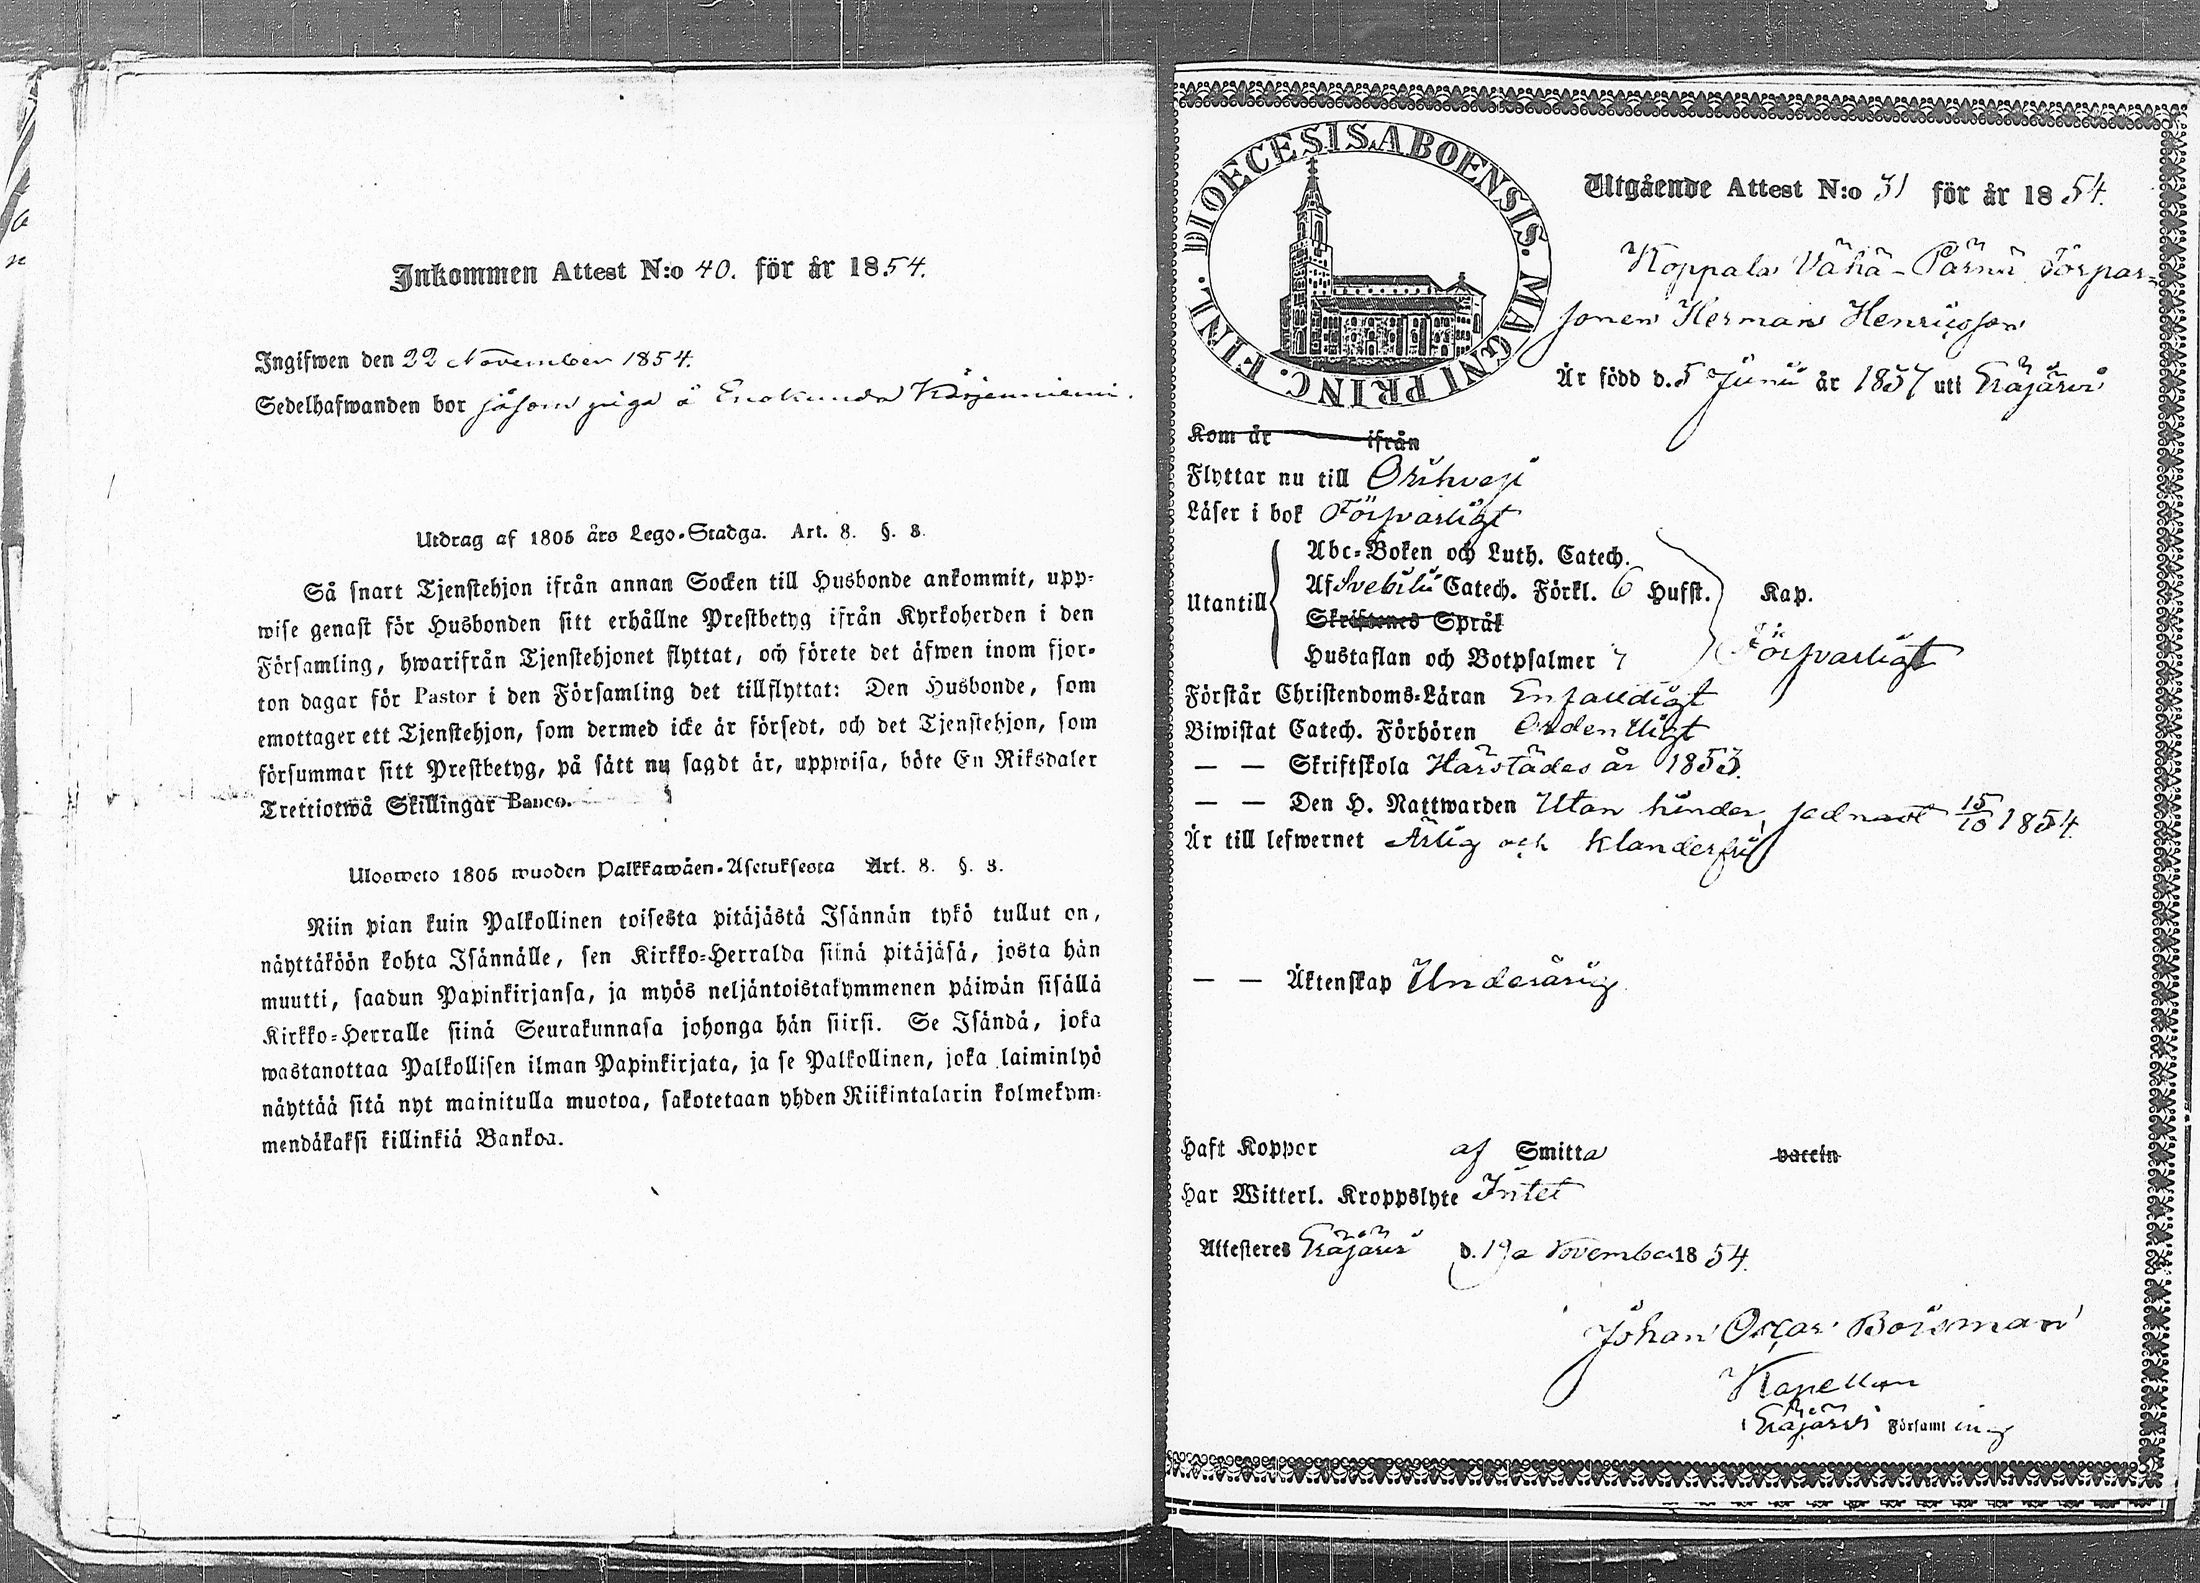 Inkommen Attest N:o 40. för år 1854.
Ingifwen den 22 November 1854.
Sedelhafwanden bor såsom piga å Enokunda Kärjenniemi.
Utdrag af 1805 års Lego-Stadga. Art. 8. §. 3.
Så snart Tjenstehjon ifrån annan Socken till Husbonde ankommit, upp-
wise genast för Husbonden sitt erhållne Prestbetyg ifrån Kyrkoherden i den
Församling, hwarifrån Tjenstehjonet flyttat, och förete det äfwen inom fjor-
ton dagar för Pastor i den Församling det tillflyttat: Den Husbonde, som
emottager ett Tjenstehjon, som dermed icke är försedt, och det Tjenstehjon, som
försummar sitt Prestbetyg, på sätt nu sagdt är, uppwisa, böte En Riksdaler
Trettiotwå Skillingar Banco.
Ulosweto 1805 wuoden Palkkawäen-Asetuksesta Art. 8. §. 3.
Niin pian kuin Palkollinen toisesta pitäjästä Isännän tykö tullut on,
näyttäköön kohta Isännälle, sen Kirkko-Herralda siinä pitäjäsä, josta hän
muutti, saadun Papinkirjansa, ja myös neljäntoistakymmenen päiwän sisällä
Kirkko-Herralle siinä Seurakunnasa johonga hän siirsi. Se Isändä, joka
wastanottaa Palkollisen ilman Papinkirjata, ja se Palkollinen, joka laiminlyö
näyttää sitä nyt mainitulla muotoa, sakotetaan yhden Riikintalarin kolmekym-
mendäkaksi killinkiä Bankoa.
DIOECESIS ABOENSIS. MAGNI PRINC. FINL.
Utgående Attest N:o 31 för år 1854.
Koppala Vähä-Pärnä Torpar-
sonen Herman Henricsson
Är född d. 5 Junii år 1837 uti Eräjärvi
Kom år ifrån
Flyttar nu till Orihvesi
Läser i bok Försvarligt
Abc-Boken och Luth. Catech.
Utantill Af Svebilii Catech. Förkl. 6 Hufst. Kap.
Skriftenes Språk
Hustaflan och Botpsalmer 7 Försvarligt
Förstår Christendoms-Läran Enfaldigt
Biwistat Catech. Förhören Ordentligt
— — Skriftskola Härstädes år 1853.
— — Den H. Nattwarden Utan hinder, sednast 15/10 1854.
Är till lefwernet Ärlig och klanderfri
— — Äktenskap Underårig
Haft Koppor af Smitta vaccin
Har Witterl. Kroppslyte Intet
Attesteres Eräjärvi d. 19 November 1854.
Johan Oscar Boisman
Kapellan
i Eräjärvi Församling